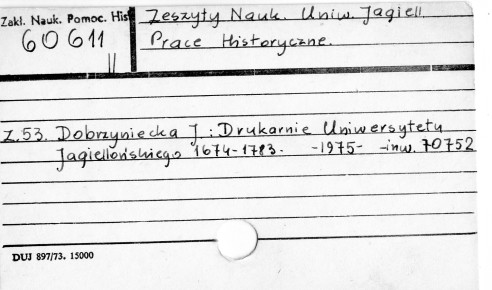 Zakł. Nauk. Pomoc. Hist
60611
II
Zeszyty Nauk. Uniw. Jagiell.
Prace Historyczne.
Z.53. Dobrzyniecka J.: Drukarnie Uniwersytetu
Jagiellońskiego 1674-1783. -1975- -inw. 70752
DUJ 897/73. 15000